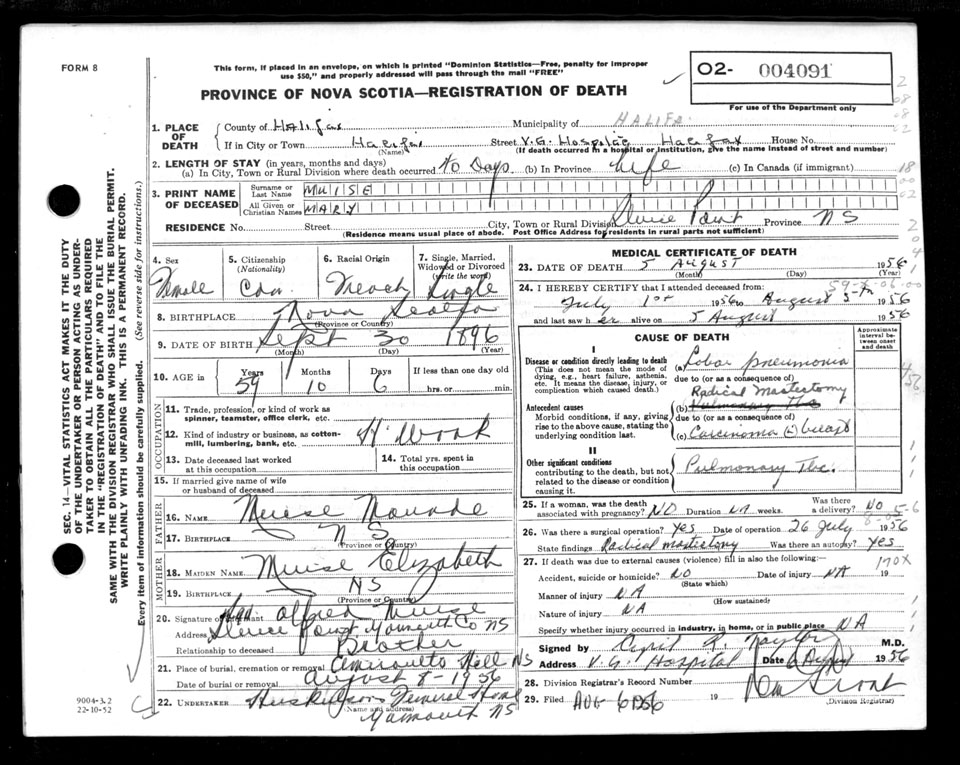 FORM 8
This form, if placed in an envelope, on which is printed "Dominion Statistics—Free, penalty for improper
use $50," and properly addressed will pass through the mail "FREE"
PROVINCE OF NOVA SCOTIA—REGISTRATION OF DEATH
O2- 004091
For use of the Department only
1. PLACE OF DEATH
County of Halifax Municipality of HALIFA
If in City or Town Halifax (Name) Street V.G. Hospital Halifax House No.
(If death occurred in a hospital or institution, give the name instead of street and number)
2. LENGTH OF STAY (in years, months and days)
(a) In City, Town or Rural Division where death occurred 40 Days (b) In Province Life (c) In Canada (if immigrant)
3. PRINT NAME OF DECEASED
Surname or Last Name MUISE
All Given or Christian Names MARY
RESIDENCE No. Street City, Town or Rural Division Sluice Point Province NS
(Residence means usual place of abode. Post Office Address for residents in rural parts not sufficient)
4. Sex Female
5. Citizenship (Nationality) Can
6. Racial Origin French
7. Single, Married, Widowed or Divorced (write the word) Single
8. BIRTHPLACE Nova Scotia
(Province or Country)
9. DATE OF BIRTH Sept 30 1896
(Month) (Day) (Year)
10. AGE in Years 59 Months 10 Days 6 If less than one day old hrs. or min.
OCCUPATION
11. Trade, profession, or kind of work as spinner, teamster, office clerk, etc.
12. Kind of industry or business, as cotton-mill, lumbering, bank, etc. H. Work
13. Date deceased last worked at this occupation
14. Total yrs. spent in this occupation
15. If married give name of wife or husband of deceased
FATHER
16. NAME Muise
17. BIRTHPLACE N S
(Province or Country)
MOTHER
18. MAIDEN NAME Muise Elizabeth
19. BIRTHPLACE NS
(Province or Country)
20. Signature of informant Alfred Muise
Address Sluice Point Yarmouth Co NS
Relationship to deceased Brother
21. Place of burial, cremation or removal Amiraults Hill NS
Date of burial or removal August 8-1956
22. UNDERTAKER Huskilson Funeral Home
(Name and address)
Yarmouth NS
MEDICAL CERTIFICATE OF DEATH
23. DATE OF DEATH 5 AUGUST 1956
(Month) (Day) (Year)
24. I HEREBY CERTIFY that I attended deceased from:
July 1st 1956 to August 5th 1956
and last saw her alive on 5 August 1956
CAUSE OF DEATH
Approximate interval between onset and death
I
Disease or condition directly leading to death
(This does not mean the mode of dying, e.g., heart failure, asthenia, etc. It means the disease, injury, or complication which caused death.)
(a) Lobar pneumonia
due to (or as a consequence of)
Radical Mastectomy
Antecedent causes
Morbid conditions, if any, giving rise to the above cause, stating the underlying condition last.
(b) Pulmonary Tbc
due to (or as a consequence of)
(c) Carcinoma (L) breast
II
Other significant conditions
contributing to the death, but not related to the disease or condition causing it.
Pulmonary Tbc.
25. If a woman, was the death associated with pregnancy? NO Duration NA weeks. Was there a delivery? NO
26. Was there a surgical operation? Yes Date of operation 26 July 1956
State findings Radical mastectomy Was there an autopsy? Yes
27. If death was due to external causes (violence) fill in also the following:—
170X
Accident, suicide or homicide? NO Date of injury NA 19
(State which)
Manner of injury NA
(How sustained)
Nature of injury NA
Specify whether injury occurred in industry, in home, or in public place NA
Signed by Cyril R. Naylor M.D.
Address V.G. Hospital Date 6 August 1956
28. Division Registrar's Record Number
29. Filed AUG 6 1956 19
(Division Registrar)
SEC. 14—VITAL STATISTICS ACT MAKES IT THE DUTY
OF THE UNDERTAKER OR PERSON ACTING AS UNDER-
TAKER TO OBTAIN ALL THE PARTICULARS REQUIRED
IN THE "REGISTRATION OF DEATH" AND TO FILE THE
SAME WITH THE DIVISION REGISTRAR WHO SHALL ISSUE THE BURIAL PERMIT.
WRITE PLAINLY WITH UNFADING INK. THIS IS A PERMANENT RECORD.
Every item of information should be carefully supplied. (See reverse side for instructions.)
9004-3.2
22-10-52